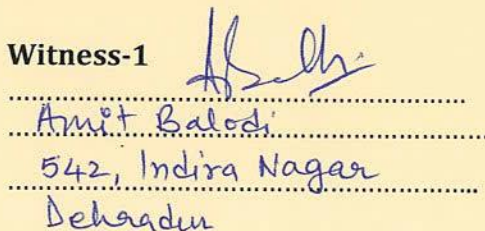 Witness-1
Amit Balodi
542, Indira Nagar
Dehradun